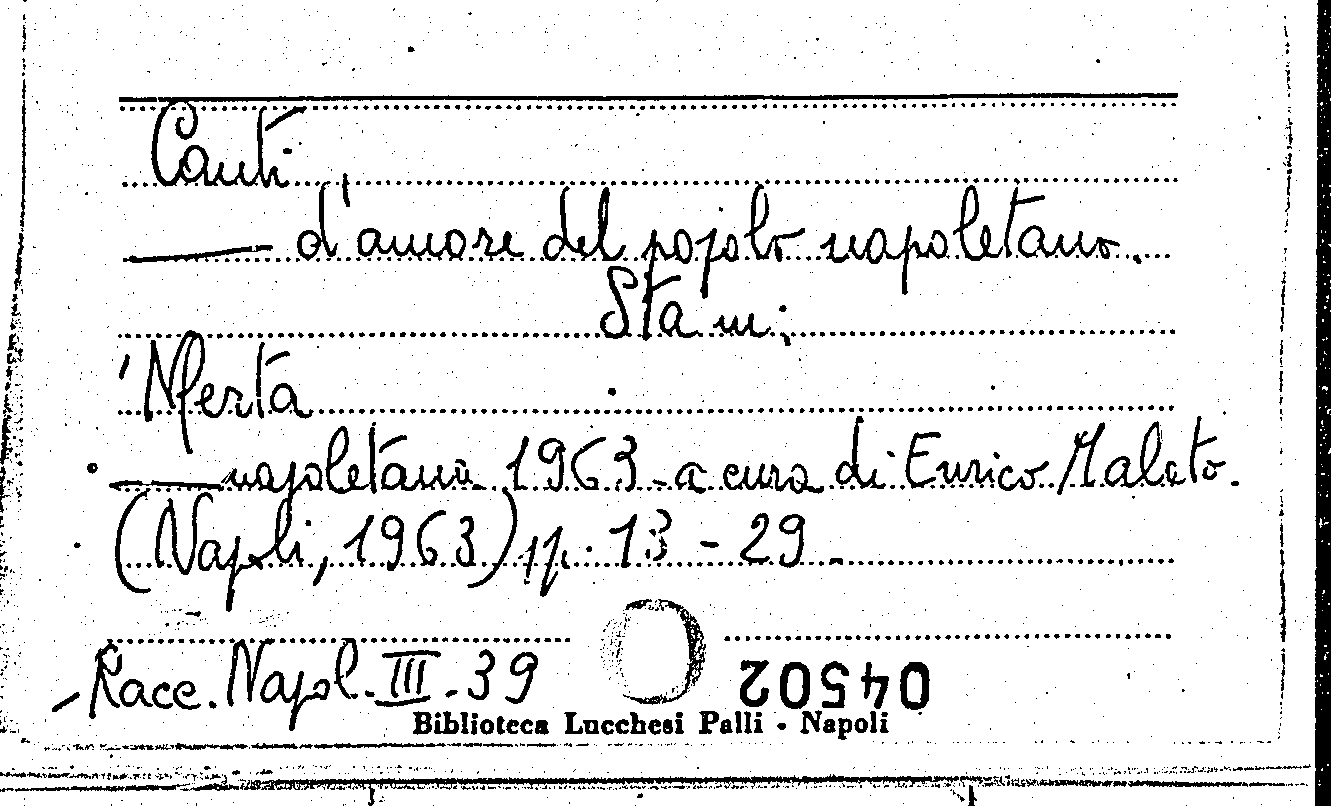 Canti
— d'amore del popolo napoletano.
Sta in:
'Nferta
— napoletana 1963 - a cura di Enrico Malato.
(Napoli, 1963) pp. 13 - 29 -
Racc. Napol. III - 39
04502
Biblioteca Lucchesi Palli - Napoli